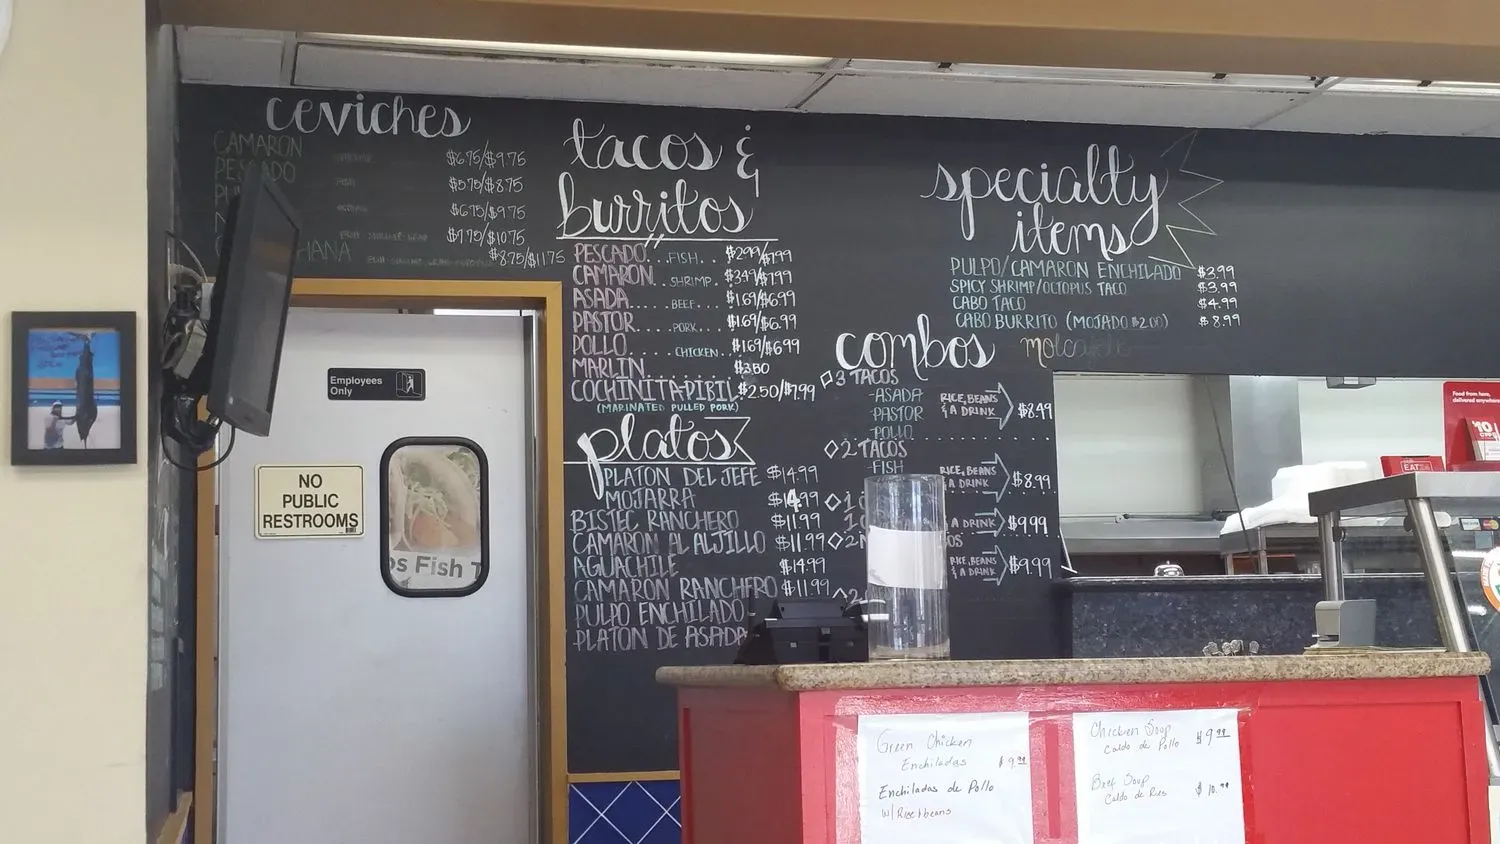 ceviches
CAMARON $6.75/$9.75
PESCADO FISH $5.75/$8.75
$6.75/$9.75
$7.75/$10.75
HANA $8.75/$11.75
tacos &
burritos
PESCADO...FISH.. $2.99/$7.99
CAMARON..SHRIMP. $3.49/$7.99
ASADA.....BEEF.. $1.69/$6.99
PASTOR....PORK.. $1.69/$6.99
POLLO.....CHICKEN.. $1.69/$6.99
MARLIN $3.50
COCHINITA PIBIL $2.50/$7.99
(MARINATED PULLED PORK)
platos
PLATON DEL JEFE $14.99
MOJARRA $14.99
BISTEC RANCHERO $11.99
CAMARON AL ALJILLO $11.99
AGUACHILE $14.99
CAMARON RANCHERO $11.99
PULPO ENCHILADO
PLATON DE ASADA
specialty
items
PULPO/CAMARON ENCHILADO $3.99
SPICY SHRIMP/OCTOPUS TACO $3.99
CABO TACO $4.99
CABO BURRITO (MOJADO $2.00) $8.99
combos
3 TACOS
-ASADA
-PASTOR
-POLLO
RICE, BEANS
& A DRINK $8.49
2 TACOS
-FISH
RICE, BEANS
& A DRINK $8.99
& A DRINK $9.99
RICE, BEANS
& A DRINK $9.99
Employees
Only
NO
PUBLIC
RESTROOMS
os Fish T
Food from here,
delivered anywhere
$10
EAT24
Green Chicken
Enchiladas $9.99
Enchiladas de Pollo
w/Rice+beans
Chicken Soup $9.99
Caldo de Pollo
Beef Soup
Caldo de Res $10.99